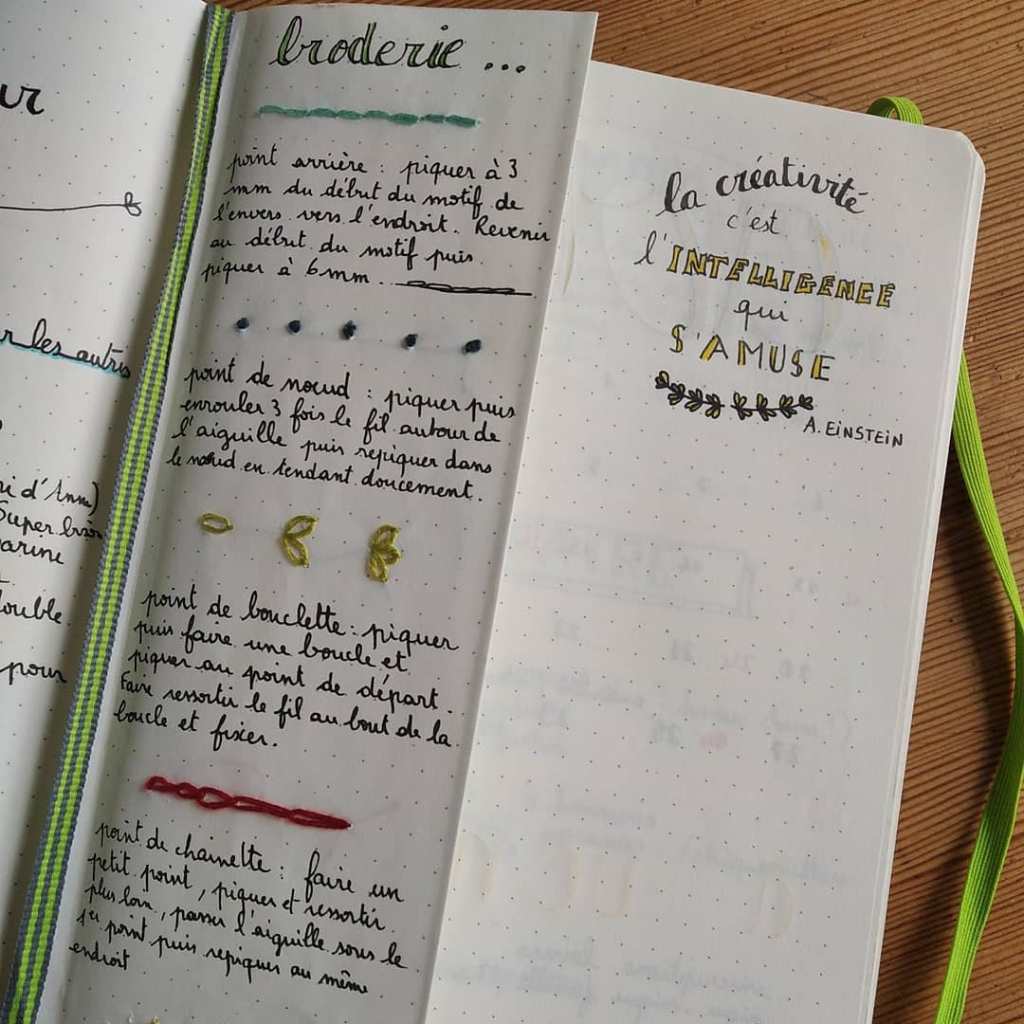 ur
les autres
d'Anne)
Super
arine
double.
pour
broderie...
point arrière : piquer à 3
mm du début du motif de
l'envers vers l'endroit. Revenir
au début du motif puis
piquer à 6mm.
point de nœud : piquer puis
enrouler 3 fois le fil autour de
l'aiguille puis repiquer dans
le nœud en tendant doucement.
point de bouclette : piquer
puis faire une boucle et
piquer au point de départ.
Faire ressortir le fil au bout de la
boucle et fixer.
point de chainette : faire un
petit point, piquer et ressortir
plus loin, passer l'aiguille sous le
1er point puis repiquer au même
endroit
la créativité
c'est
l'INTELLIGENCE
qui
S'AMUSE
A. EINSTEIN